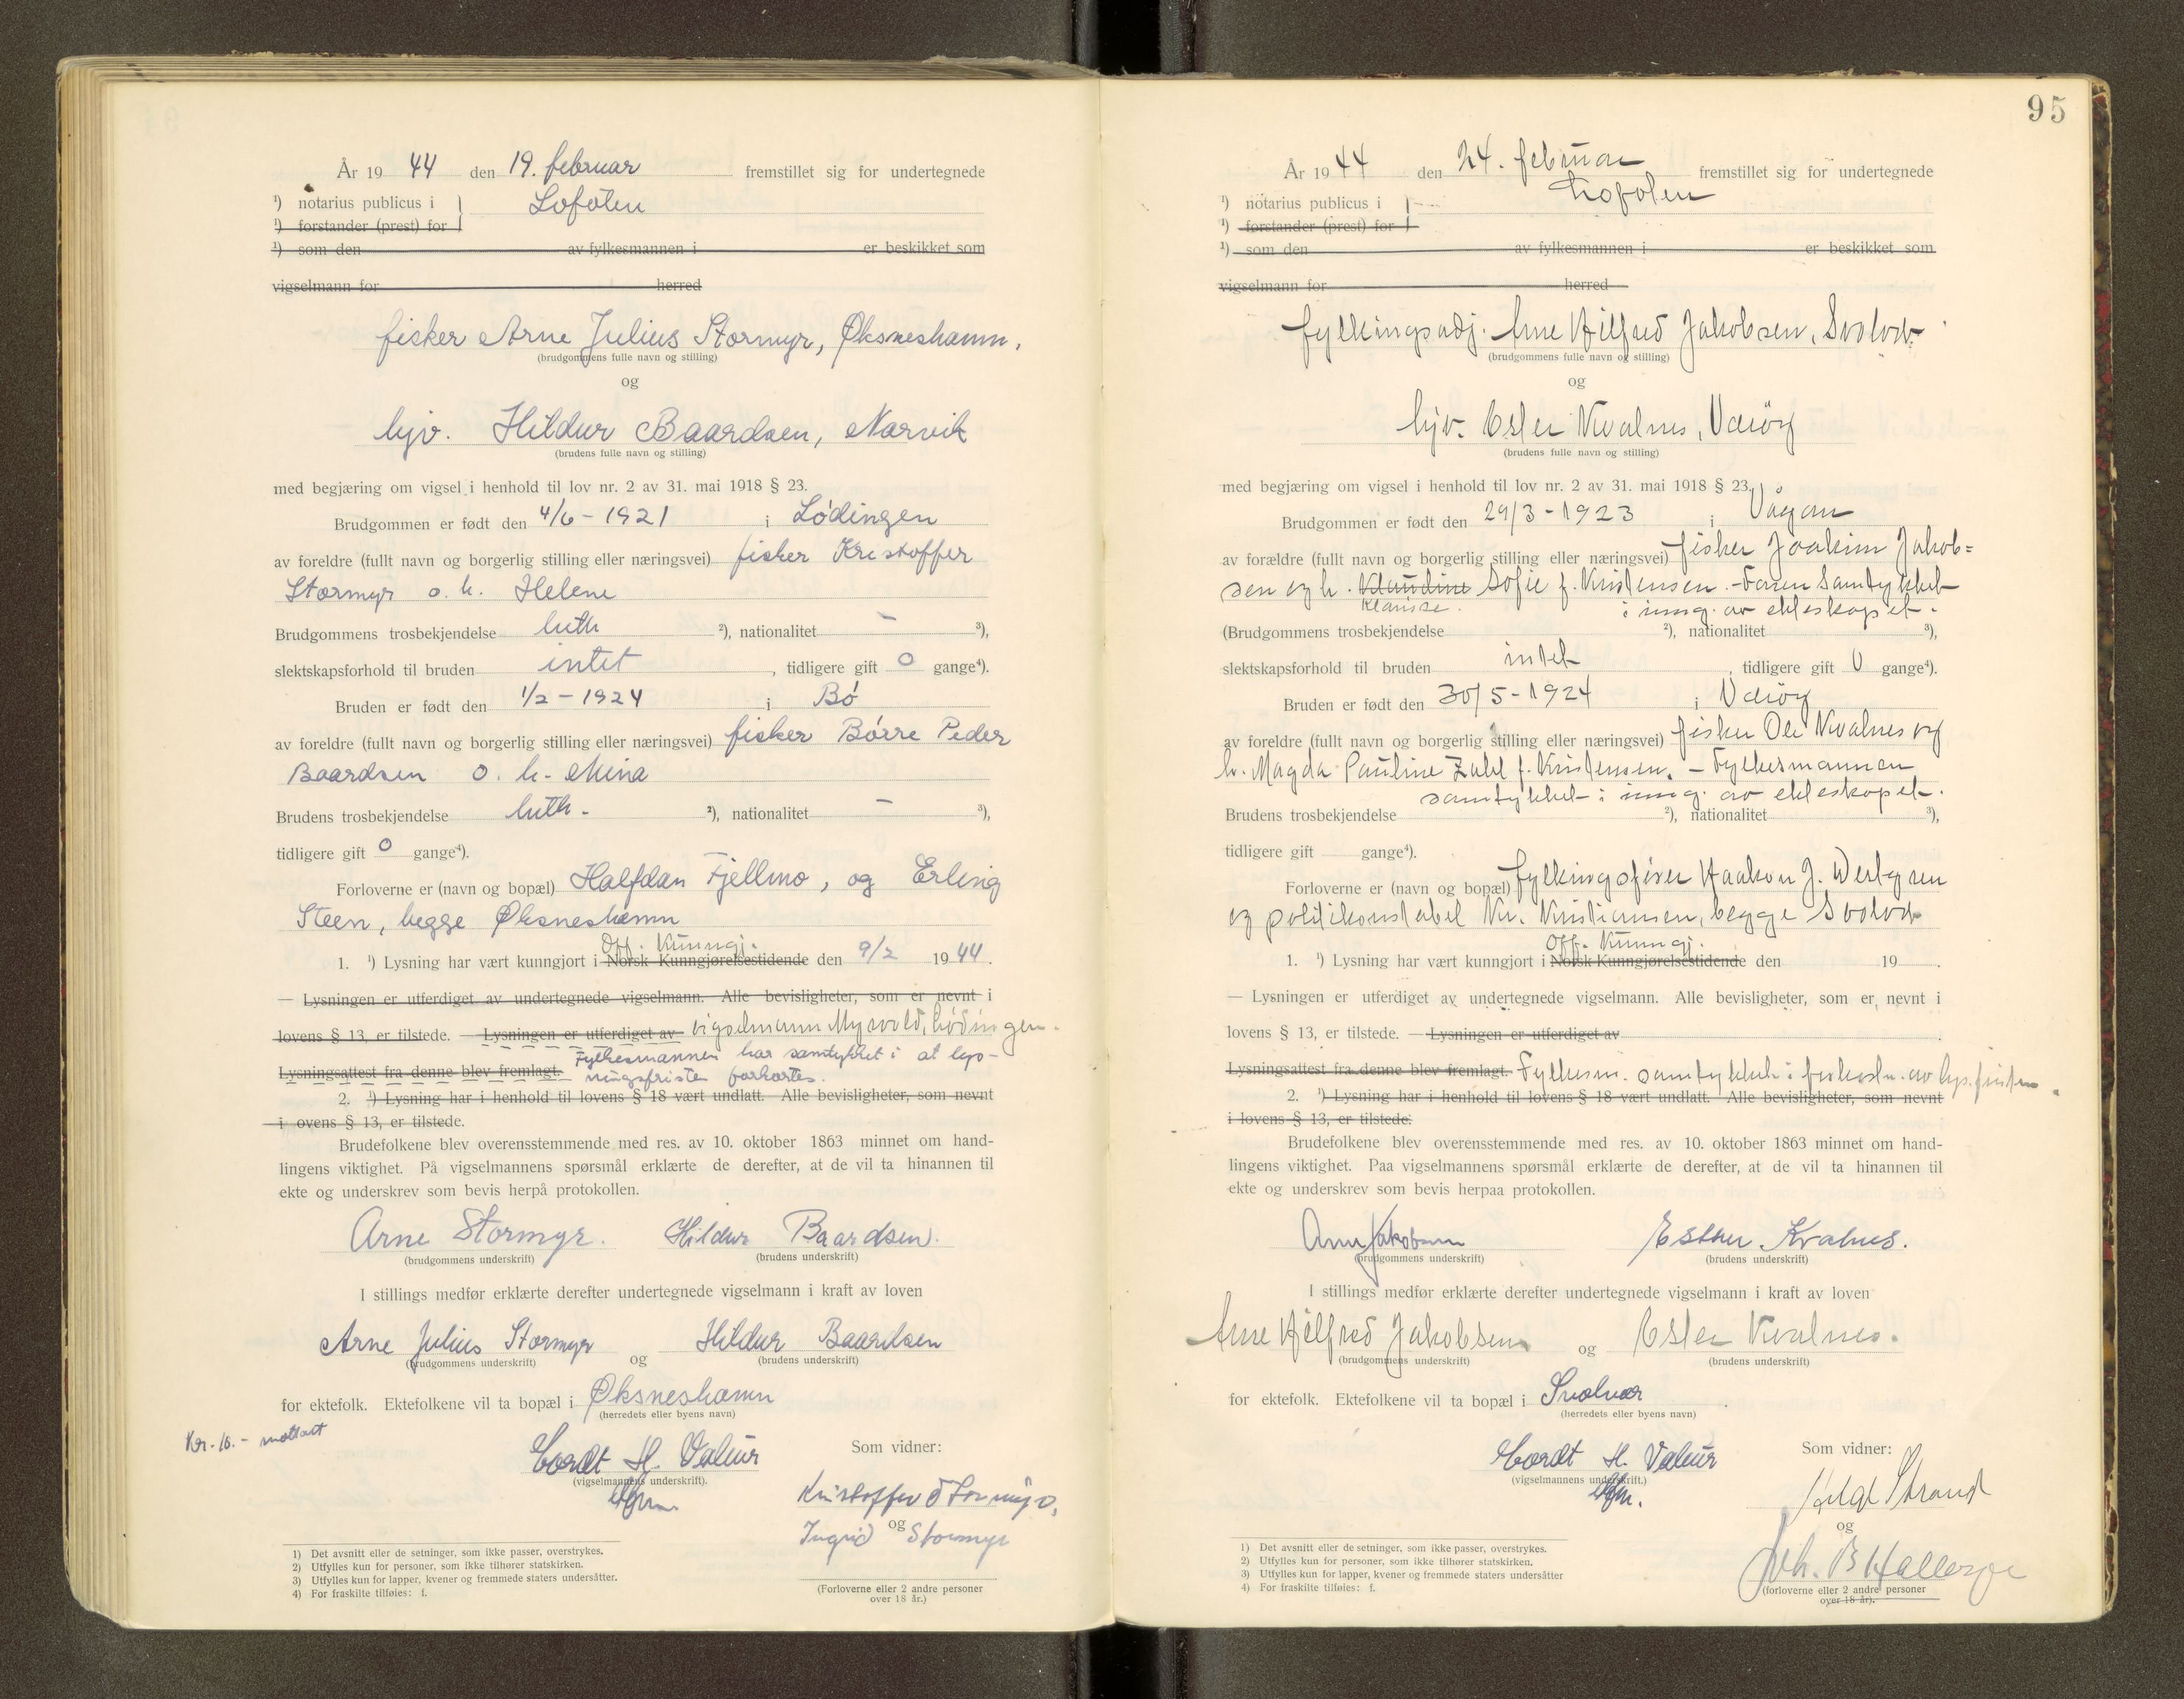 År 19 44 den 19. februar fremstillet sig for undertegnede
¹) notarius publicus i } Lofoten
¹) forstander (prest) for
¹) som den av fylkesmannen i er beskikket som
vigselmann for herred
fisker Arne Julius Stormyr, Øksneshamn,
(brudgommens fulle navn og stilling)
og
hjv. Hildur Baardsen, Narvik
(brudens fulle navn og stilling)
med begjæring om vigsel i henhold til lov nr. 2 av 31. mai 1918 § 23.
Brudgommen er født den 4/6 - 1921 i Lødingen
av foreldre (fullt navn og borgerlig stilling eller næringsvei) fisker Kristoffer
Stormyr o. h. Helene
Brudgommens trosbekjendelse luth ²), nationalitet - ³),
slektskapsforhold til bruden intet, tidligere gift 0 gange⁴).
Bruden er født den 1/2 - 1924 i Bø
av foreldre (fullt navn og borgerlig stilling eller næringsvei) fisker Børre Peder
Baardsen o. h. Mina
Brudens trosbekjendelse luth. ²), nationalitet - ³),
tidligere gift 0 gange⁴).
Forloverne er (navn og bopæl) Halfdan Fjellmo, og Erling
Steen, begge Øksneshamn
Off. Kunngj.
1. ¹) Lysning har vært kunngjort i Norsk Kunngjørelsestidende den 9/2 19 44.
— Lysningen er utferdiget av undertegnede vigselmann. Alle bevisligheter, som er nevnt i
lovens § 13, er tilstede. — Lysningen er utferdiget av vigselmann Myrvold, Lødingen.
Fylkesmannen har samtykket i at lys-
Lysningsattest fra denne blev fremlagt. ningsfristen forkortes.
2. ¹) Lysning har i henhold til lovens § 18 vært undlatt. Alle bevisligheter, som nevnt
i ovens § 13, er tilstede.
Brudefolkene blev overensstemmende med res. av 10. oktober 1863 minnet om hand-
lingens viktighet. På vigselmannens spørsmål erklærte de derefter, at de vil ta hinannen til
ekte og underskrev som bevis herpå protokollen.
Arne Stormyr. Hildur Baardsen.
(brudgommens underskrift) (brudens underskrift)
I stillings medfør erklærte derefter undertegnede vigselmann i kraft av loven
Arne Julius Stormyr og Hildur Baardsen
(brudgommens underskrift) (brudens underskrift)
for ektefolk. Ektefolkene vil ta bopæl i Øksneshamn
(herredets eller byens navn)
Kr. 10.- mottatt
Cordt H. Valeur
(vigselmannens underskrift).
Som vidner:
Kristoffer Stormyr,
og
Ingrid Stormyr
(Forloverne eller 2 andre personer
over 18 år.)
1) Det avsnitt eller de setninger, som ikke passer, overstrykes.
2) Utfylles kun for personer, som ikke tilhører statskirken.
3) Utfylles kun for lapper, kvener og fremmede staters undersåtter.
4) For fraskilte tilføies: f.
95
År 19 44 den 24. februar fremstillet sig for undertegnede
¹) notarius publicus i } Lofoten
¹) forstander (prest) for
¹) som den av fylkesmannen i er beskikket som
vigselmann for herred
fylkingsadj. Arne Hilfred Jakobsen, Svolvær.
(brudgommens fulle navn og stilling)
og
hjv. Ester Kvalnes, Værøy
(brudens fulle navn og stilling)
med begjæring om vigsel i henhold til lov nr. 2 av 31. mai 1918 § 23.
Brudgommen er født den 29/3 - 1923 i Vågan
av forældre (fullt navn og borgerlig stilling eller næringsvei) fisker Joakim Jakob=
sen og h. Klaudine Sofie f. Kristensen. - Faren samtykket
Klarisse. i inng. av ekteskapet.
(Brudgommens trosbekjendelse ²), nationalitet ³),
slektskapsforhold til bruden intet, tidligere gift 0 gange⁴).
Bruden er født den 30/5 - 1924 i Værøy
av foreldre (fullt navn og borgerlig stilling eller næringsvei) fisker Ole Kvalnes og
h. Magda Pauline Zahl f. Kristensen. - Fylkesmannen
samtykket i inng. av ekteskapet.
Brudens trosbekjendelse ²), nationalitet ³),
tidligere gift gange⁴).
Forloverne er (navn og bopæl) fylkingsfører Haakon J.
og politikonstabel Kr. Kristiansen, begge Svolvær
Off. Kunngj.
1. ¹) Lysning har vært kunngjort i Norsk Kunngjørelsestidende den 19 .
— Lysningen er utferdiget av undertegnede vigselmann. Alle bevisligheter, som er nevnt i
lovens § 13, er tilstede. — Lysningen er utferdiget av .
Lysningsattest fra denne blev fremlagt. Fylkesm. samtykket i forkortn. av lys.fristen.
2. ¹) Lysning har i henhold til lovens § 18 vært undlatt. Alle bevisligheter, som nevnt
i lovens § 13, er tilstede.
Brudefolkene blev overensstemmende med res. av 10. oktober 1863 minnet om hand-
lingens viktighet. Paa vigselmannens spørsmål erklærte de derefter, at de vil ta hinannen til
ekte og underskrev som bevis herpaa protokollen.
Arne Jakobsen Esther Kvalnes.
(brudgommens underskrift) (brudens underskrift)
I stillings medfør erklærte derefter undertegnede vigselmann i kraft av loven
Arne Hilfred Jakobsen og Ester Kvalnes.
(brudgommens underskrift) (brudens underskrift)
for ektefolk. Ektefolkene vil ta bopæl i Svolvær.
(herredets eller byens navn)
Cordt H. Valeur
(vigselmannens underskrift.)
Som vidner:
Strand
og
Joh. B
(forloverne eller 2 andre personer
over 18 år).
1) Det avsnitt eller de setninger, som ikke passer, overstrykes.
2) Utfylles kun for personer, som ikke tilhører statskirken.
3) Utfylles kun for lapper, kvener og fremmede staters undersåtter
4) For fraskilte tilføies: f.